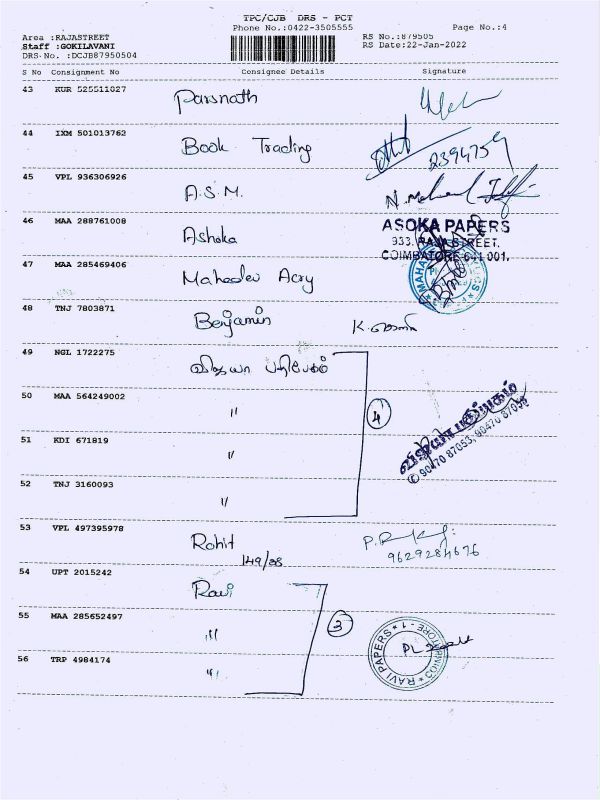 TPC/CJB DRS - PCT
Phone No.:0422-3505555 Page No.:4
Area :RAJASTREET RS No.:879505
Staff :GOKILAVANI RS Date:22-Jan-2022
DRS No. :DCJB87950504
S No Consignment No Consignee Details Signature
43 KUR 525511027 Parsnath
44 IXM 501013762 Book Trading
2394759
45 VPL 936306926 A.S.M.
N. Mohamed
46 MAA 288761008 Ashoka
ASOKA PAPERS
933, RAJA STREET,
COIMBATORE 641 001.
47 MAA 285469406 Mahadev Acry
48 TNJ 7803871 Benjamin
49 NGL 1722275 விஜயா பதிப்பகம்
50 MAA 564249002 "
4
விஜயா பதிப்பகம்
✆ 90470 87053, 90470 87058
51 KDI 671819 "
52 TNJ 3160093 "
53 VPL 497395978 Rohit
149/88
9629284676
54 UPT 2015242 Ravi
55 MAA 285652497 "
3
RAVI PAPERS * COIMBATORE - 1 *
56 TRP 4984174 "